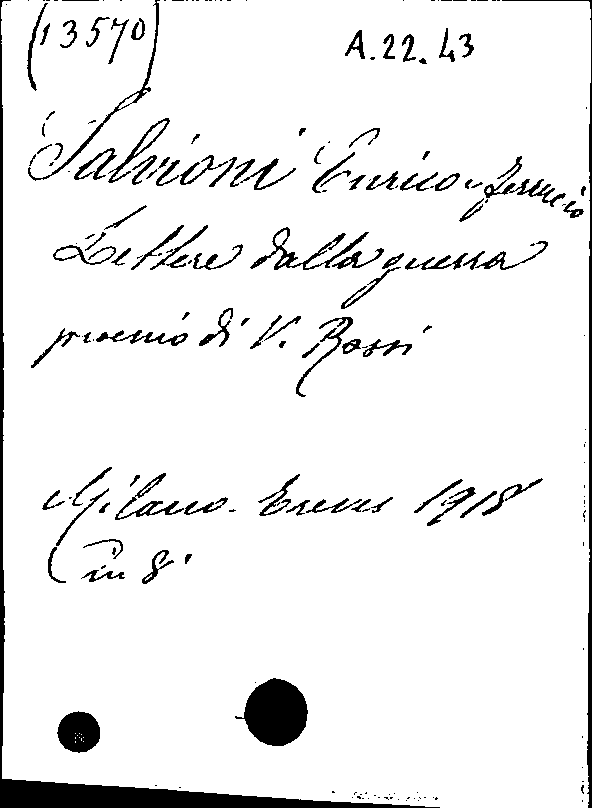 (13570)
A.22.43
Salvioni Enrico e Ferruccio
Lettere dalla guerra
proemio di V. Rossi
Milano. Treves 1918
in 8°